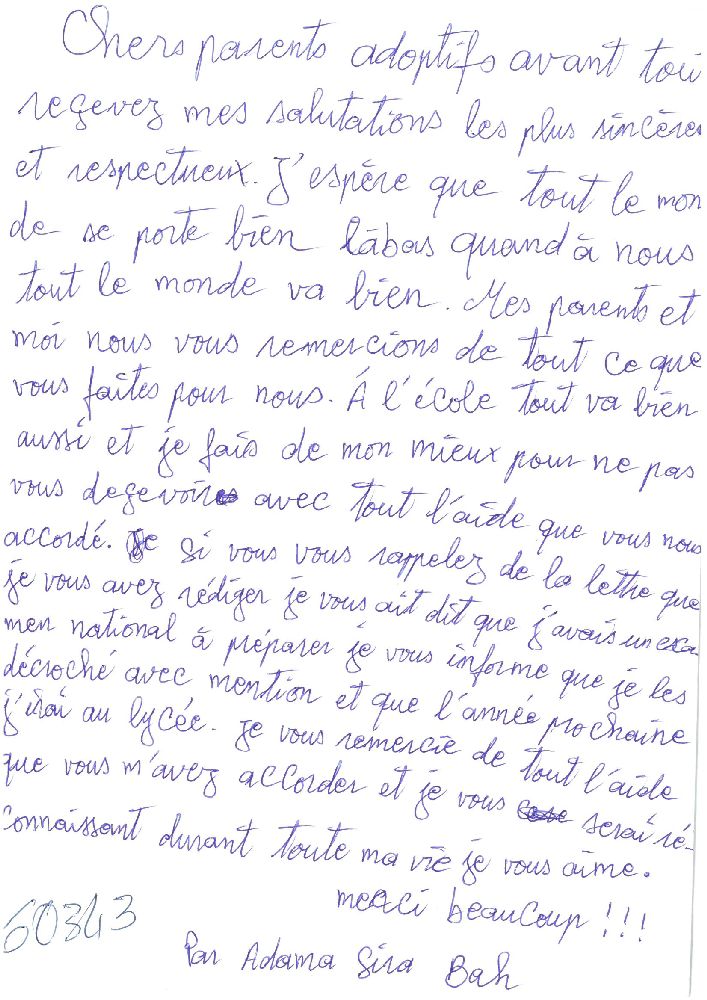 Chers parents adoptifs avant tou
reçevez mes salutations les plus sincères
et respectueux. J'espère que tout le mon
de se porte bien lâbas quand à nous
tout le monde va bien. Mes parents et
moi nous vous remercions de tout ce que
vous faîtes pour nous. À l'école tout va bien
aussi et je fais de mon mieux pour ne pas
vous deçevoir avec tout l'aide que vous nous
accordé. Je si vous vous rappelez de la lettre que
je vous avez rédiger je vous ait dit que j'avais un exa-
men national à préparer je vous informe que je les
décroché avec mention et que l'année prochaine
j'irai au lycée. Je vous remercie de tout l'aide
que vous m'avez accorder et je vous serai ré-
connaissant durant toute ma vie je vous aime.
merci beaucoup !!!
60343
Par Adama Sira Bah